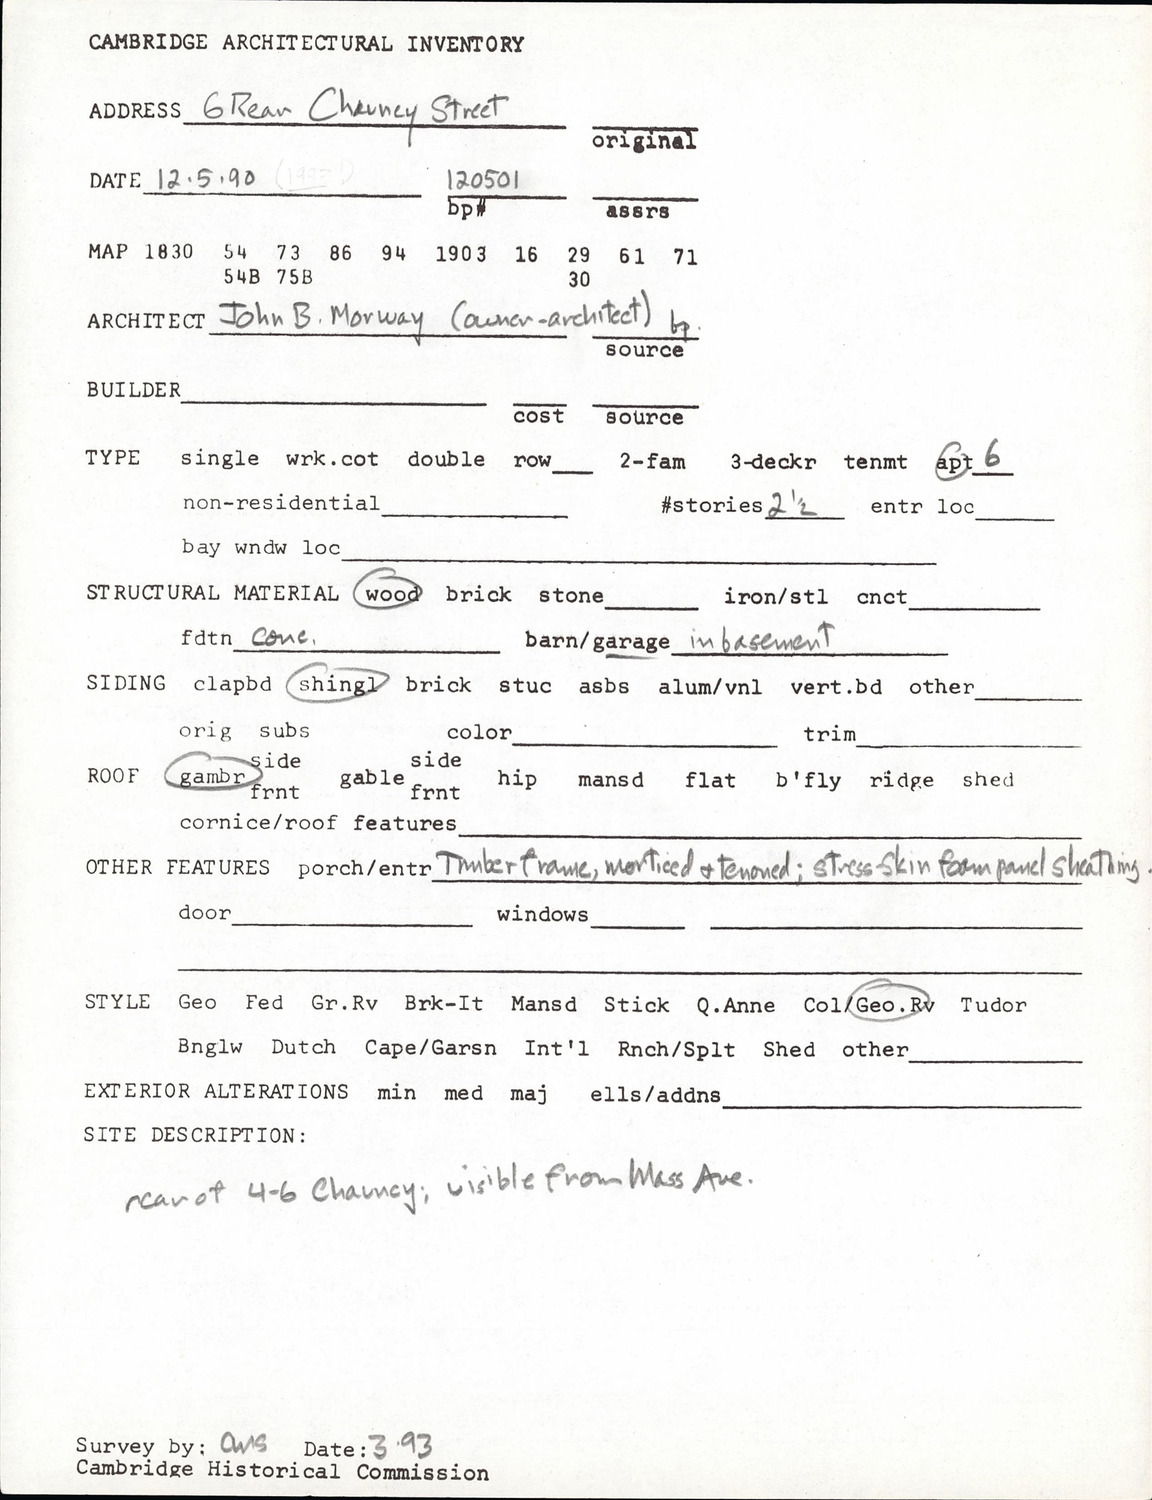 CAMBRIDGE ARCHITECTURAL INVENTORY
ADDRESS 6 Rear Chauncy Street
original
DATE 12.5.90 120501
bp# assrs
MAP 1830 54 73 86 94 1903 16 29 61 71
54B 75B 30
ARCHITECT John B. Morway (owner-architect) bp.
source
BUILDER
cost source
TYPE single wrk.cot double row 2-fam 3-deckr tenmt apt 6
non-residential #stories 2 1/2 entr loc
bay wndw loc
STRUCTURAL MATERIAL wood brick stone iron/stl cnct
fdtn conc. barn/garage in basement
SIDING clapbd shingl brick stuc asbs alum/vnl vert.bd other
orig subs color trim
side side
ROOF gambr gable hip mansd flat b'fly ridge shed
frnt frnt
cornice/roof features
OTHER FEATURES porch/entr Timber frame, morticed + tenoned; stress-skin foam panel sheathing.
door windows
STYLE Geo Fed Gr.Rv Brk-It Mansd Stick Q.Anne Col/Geo.Rv Tudor
Bnglw Dutch Cape/Garsn Int'l Rnch/Splt Shed other
EXTERIOR ALTERATIONS min med maj ells/addns
SITE DESCRIPTION:
rear of 4-6 Chauncy; visible from Mass Ave.
Survey by: Date: 3.93
Cambridge Historical Commission